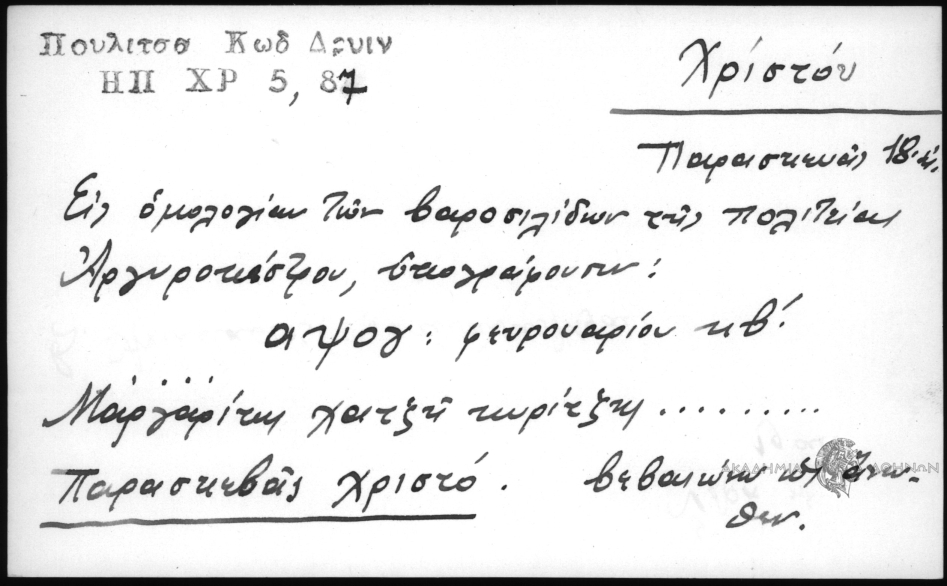 Πουλιτσα Κωδ Δρυιν
ΗΠ ΧΡ 5, 87
Χρίστόυ
Παρασκευᾶς 18.αἰ.
Εἰς ὁμολογίαν τῶν βαροσιλίδων τῆς πολιτείας
Ἀργυροκάστρου, ὑπογράφουσιν:
αψογ: φευρουαρίου κβ΄
Μαργαρίτης χατζῆ κυρίτζης .........
Παρασκεβᾶς χριστό. βεβαιώνω ὡς ἄνω-
θεν.
ΑΚΑΔΗΜΙΑ ΑΘΗΝΩΝ